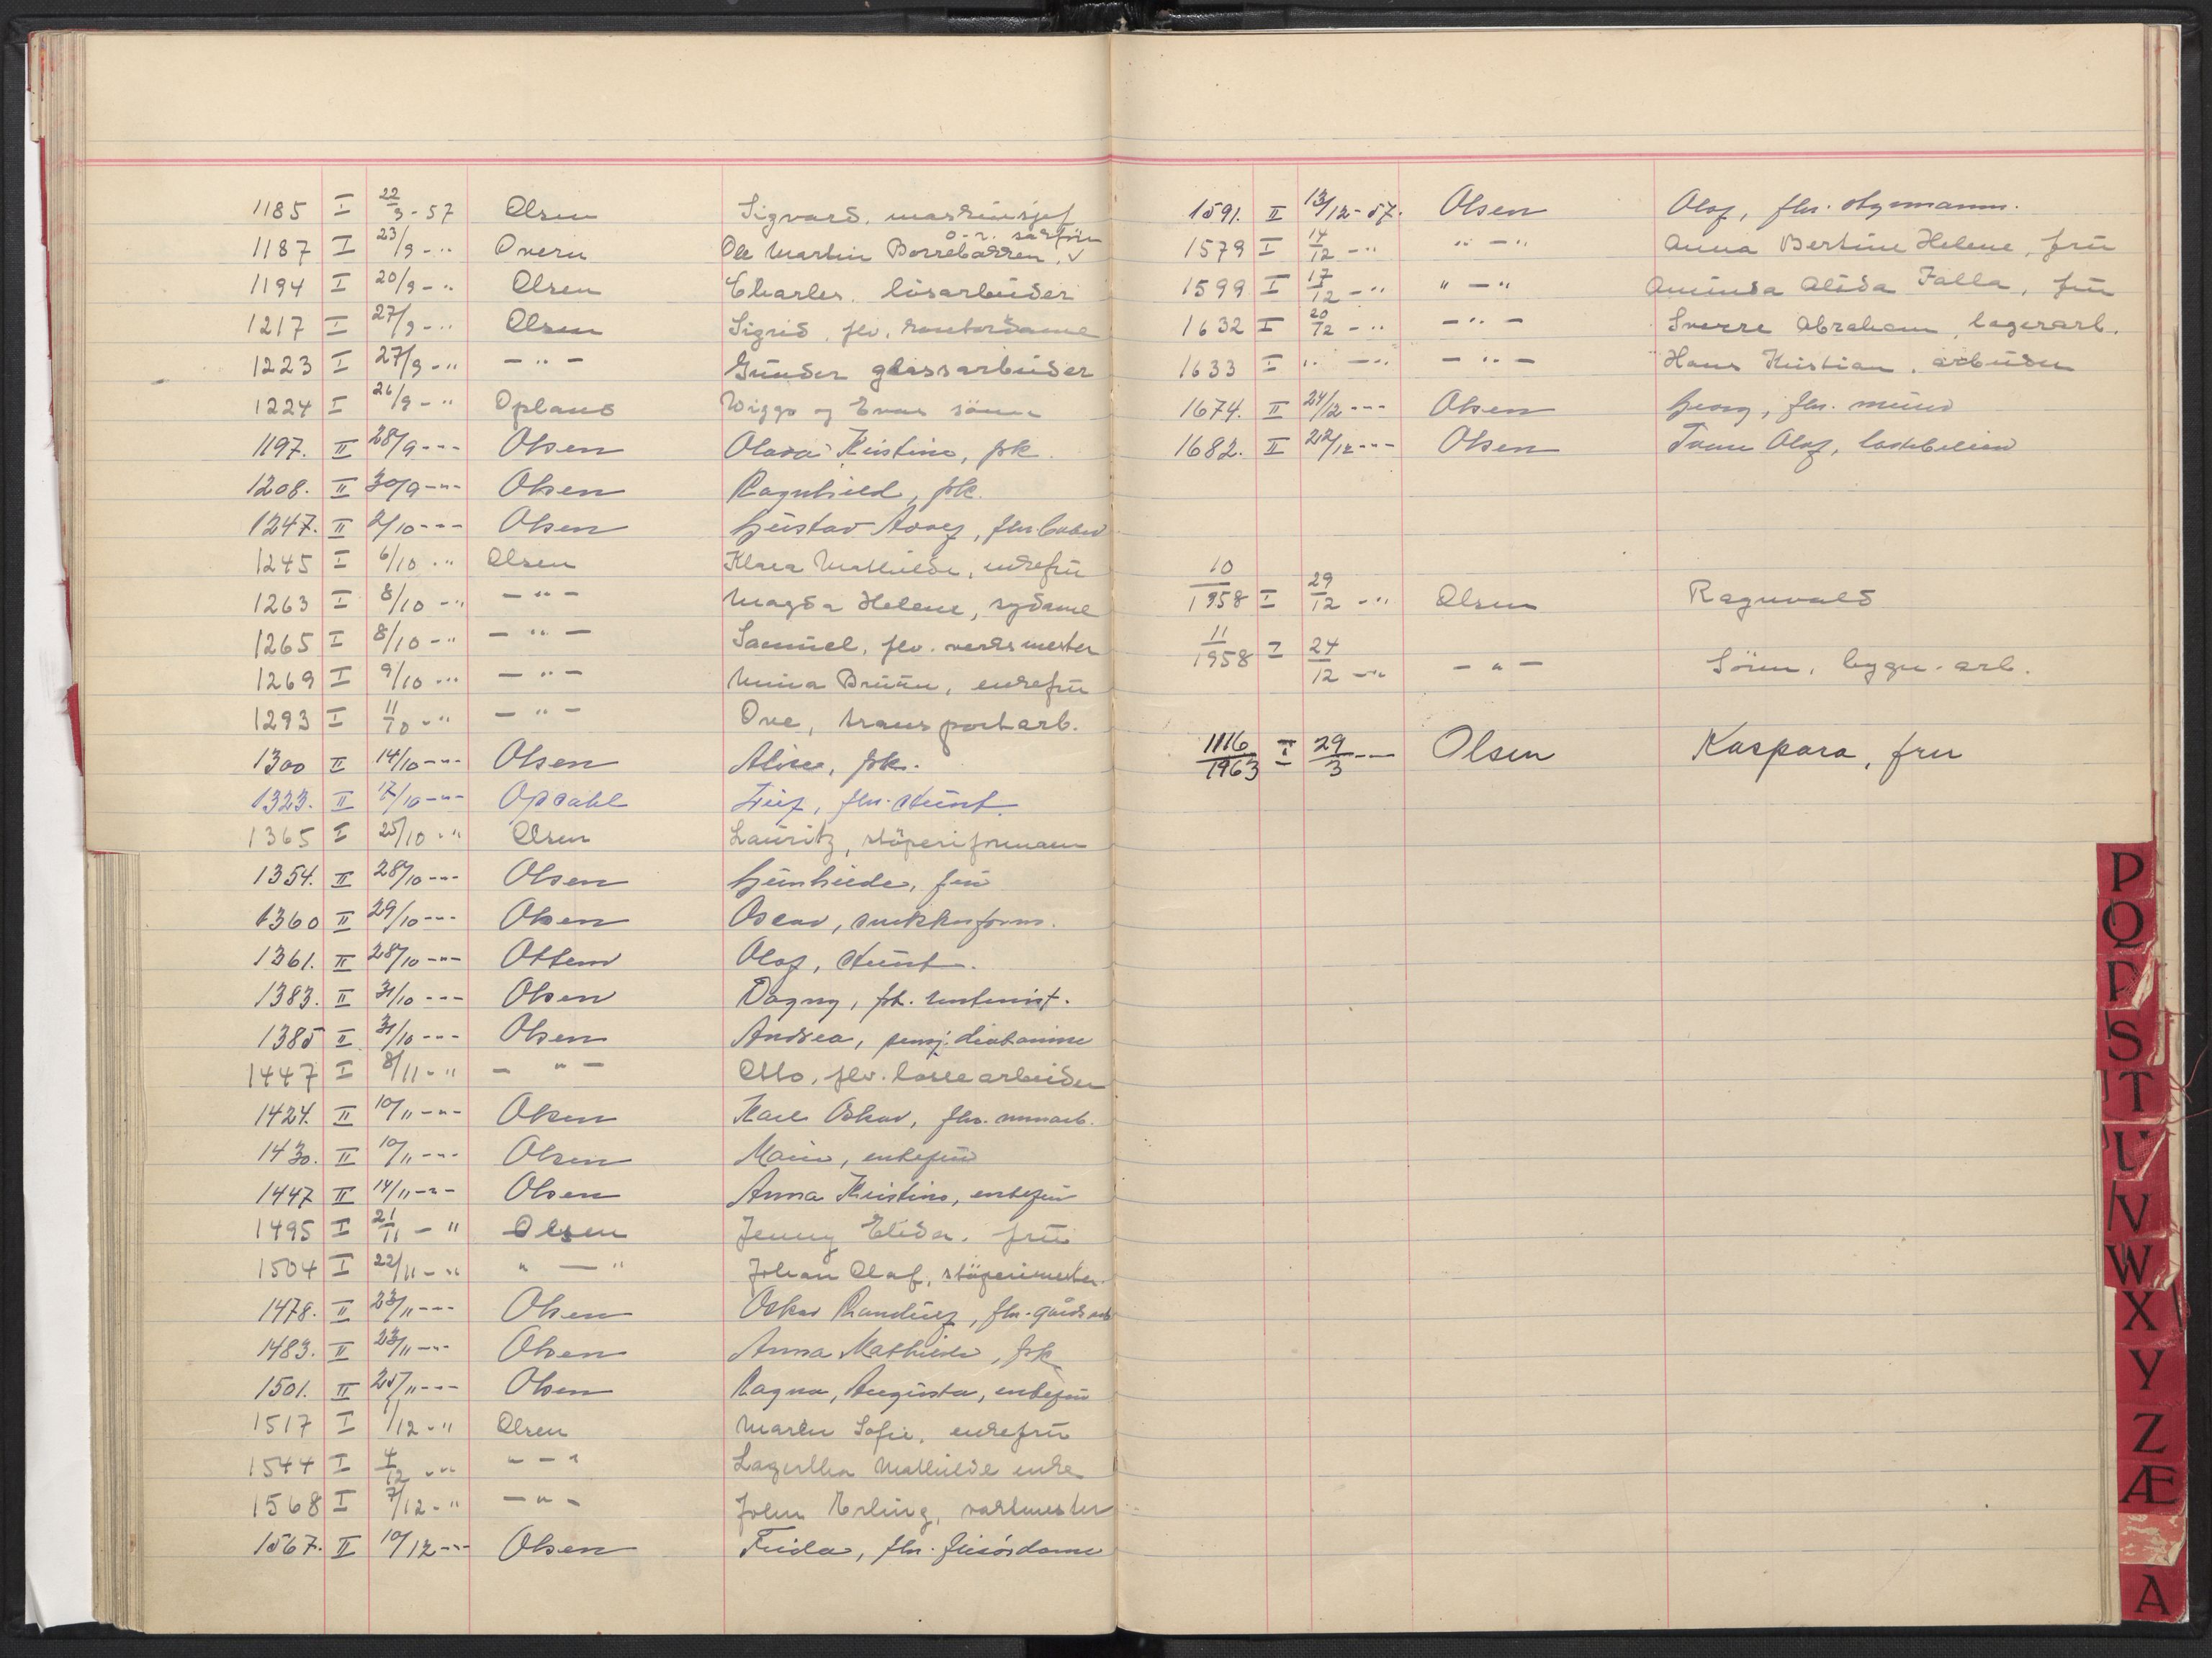 1185 I 22/9-57 Olsen Sigvard, maskinsjef
1187 I 23/9-" Overn Ole Martin Borrebakken, o.r. sakfører
1194 I 20/9-" Olsen Charles, løsarbeider
1217 I 27/9-" Olsen Sigrid, flv. kontordame
1223 I 27/9-" -"- Gunder glassarbeider
1224 I 26/9-" Opland Wiggo og Evas sønn
1197. II 28/9-"- Olsen Olava Kristine, frk.
1208. II 30/9-"- Olsen Ragnhild, frk.
1247. II 2/10-"- Olsen Gustav Adolf, fhv.
1245 I 6/10-" Olsen Klara Mathilde, enkefru
1263 I 8/10-" -"- Magda Helene, sydame
1265 I 8/10-" -"- Samuel, flv. verksmester
1269 I 9/10-" -"- Mina Bruun, enkefru
1293 I 11/10-" -"- Ove, transportarb.
1300 II 14/10-"- Olsen Alice, frk.
1323. II 17/10-"- Opdahl Leif, fhv.
1365 I 25/10-" Olsen Lauritz, støperiformann
1354. II 28/10-"- Olsen Gunhilde, fru
1360 II 29/10-"- Olsen Oscar, snekkerform.
1361. II 28/10-"- Ottem Olaf,
1383. II 31/10-"- Olsen Dagny, frk.
1385 II 31/10-"- Olsen Andrea, pensj. diakonisse
1447 I 8/11-" -"- Otto, flv. lossearbeider
1424. II 10/11-"- Olsen Karl Oskar, fhv. murarb.
1430. II 10/11-"- Olsen Marie, enkefru
1447 II 14/11-"- Olsen Anna Kristine, enkefru
1495 I 21/11-" Olsen Jenny Elida, fru
1504 I 22/11-" "-" Johan Olaf, støperimester
1478. II 23/11-"- Olsen Oskar Randulf, fhv. gårdsarb
1483. II 23/11-"- Olsen Anna Mathilde, frk
1501. II 25/11-"- Olsen Ragna, Augusta, enkefru
1517 I 1/12-" Olsen Maren Sofie, enkefru
1544 I 4/12-" "-" Lagertha Mathilde enke
1568 I 7/12-" -"- John Erling, vaktmester
1567. II 10/12-"- Olsen Frida, fhv. frisørdame
1591. II 13/12-57. Olsen Olaf, fhv. styrmann.
1579 I 14/12-" "-" Anna Bertine Helene, fru
1599 I 17/12-" "-" Aminda Alida Falla, fru
1632 I 20/12-" -"- Sverre Abraham, lagerarb.
1633 I "-" -"- Hans Kristian, arbeider
1674. II 24/12-"- Olsen Georg, fhv. murer
1682. II 22/12-"- Olsen Olaf, lastebileier
10/1958 I 29/12-" Olsen Ragnvald
11/1958 I 24/12-" -"- Sören, bygn. arb.
1116/1963 I 29/3-"- Olsen Kaspara, fru
P
Q
R
S
T
U
V
W
X
Y
Z
Æ
A